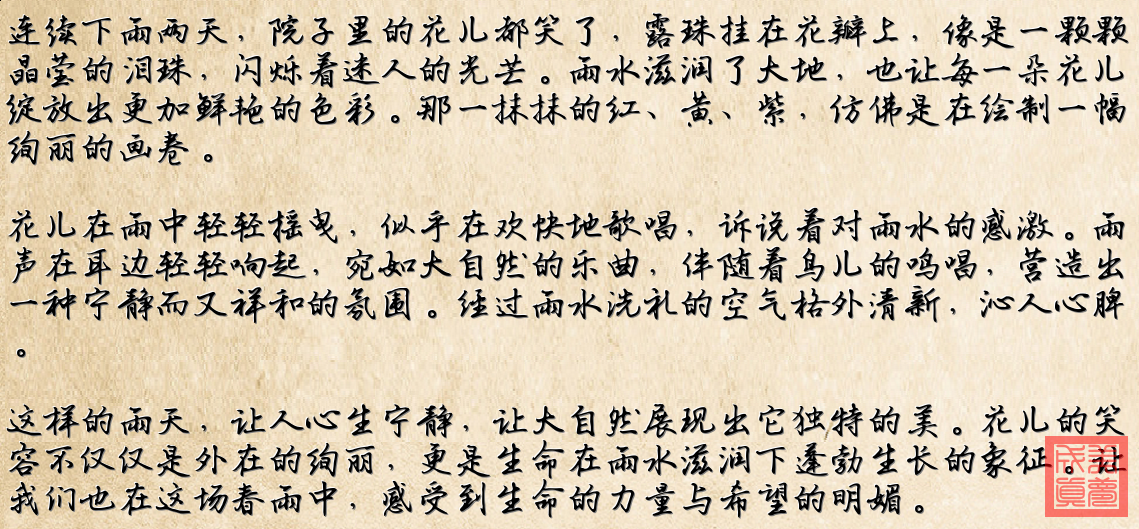 连续下雨两天，院子里的花儿都笑了，露珠挂在花瓣上，像是一颗颗
晶莹的泪珠，闪烁着迷人的光芒。雨水滋润了大地，也让每一朵花儿
绽放出更加鲜艳的色彩。那一抹抹的红、黄、紫，仿佛是在绘制一幅
绚丽的画卷。
花儿在雨中轻轻摇曳，似乎在欢快地歌唱，诉说着对雨水的感激。雨
声在耳边轻轻响起，宛如大自然的乐曲，伴随着鸟儿的鸣唱，营造出
一种宁静而又祥和的氛围。经过雨水洗礼的空气格外清新，沁人心脾
。
这样的雨天，让人心生宁静，让大自然展现出它独特的美。花儿的笑
容不仅仅是外在的绚丽，更是生命在雨水滋润下蓬勃生长的象征。让
我们也在这场春雨中，感受到生命的力量与希望的明媚。